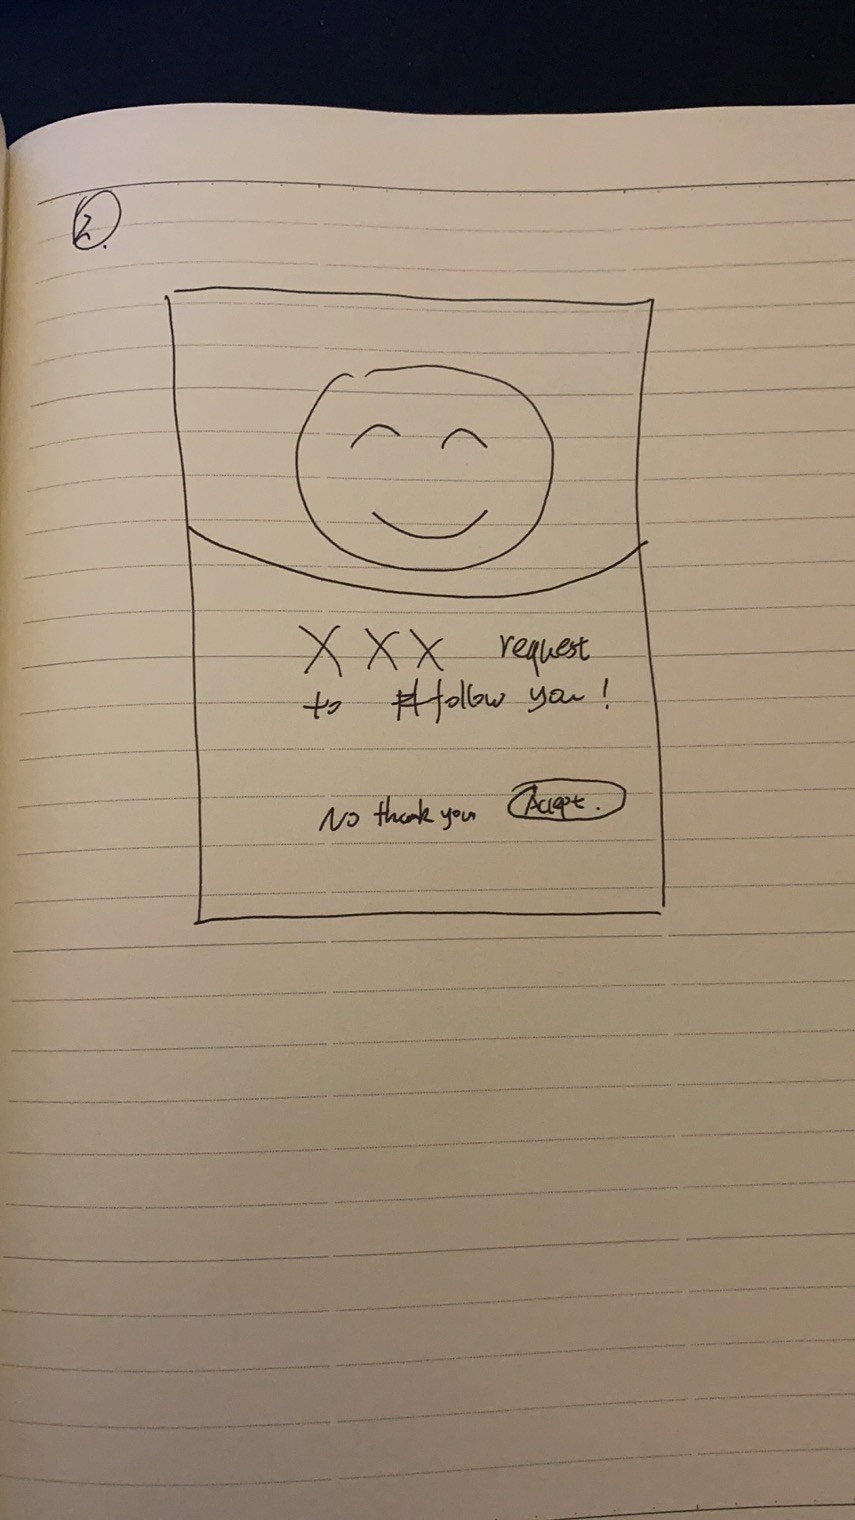 2.
XXX request
to follow you!
No thank you Accept.